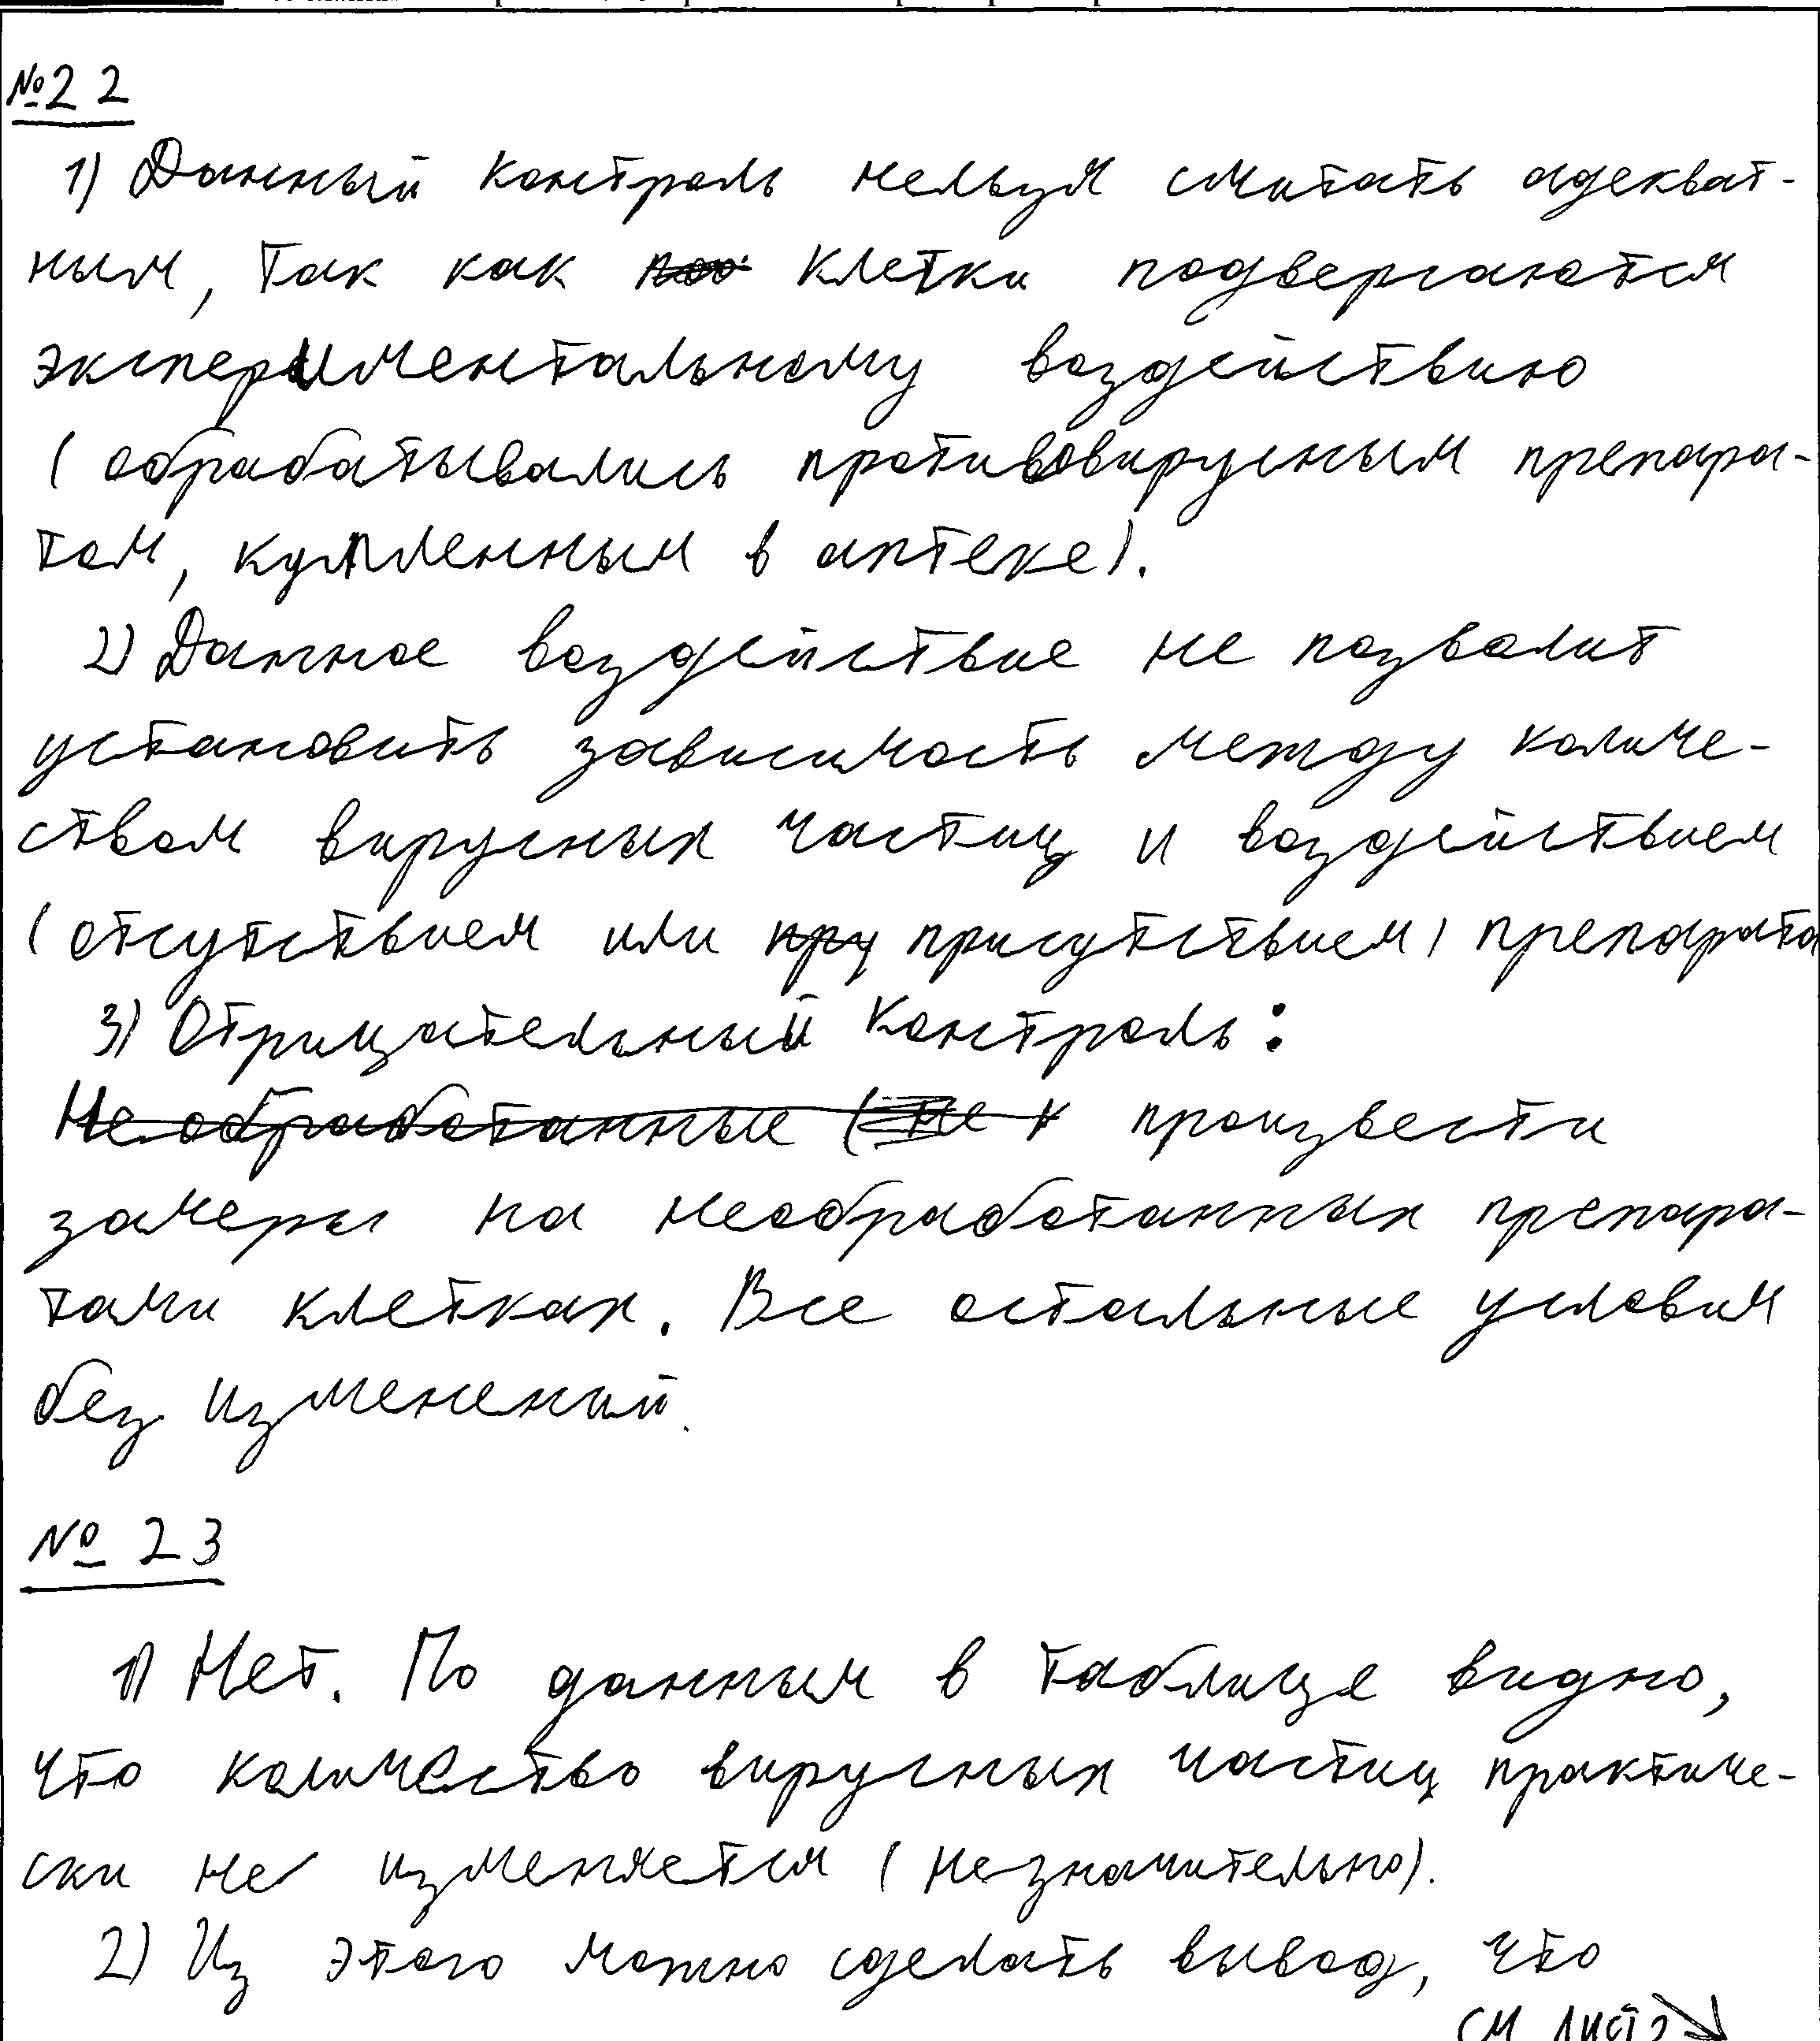 №22
1) Данный контроль нельзя считать адекват-
ным, так как клетки подвергаются
экспериментальному воздействию
(обрабатывались противовирусным препара-
том, купленным в аптеке).
2) Данное воздействие не позволит
установить зависимость между количе-
ством вирусных частиц и воздействием
(отсутствием или пру присутствием) препарата
3) Отрицательный контроль:
Не обработанные (не произвести
замеры на необработанных препара-
тами клетках. Все остальные условия
без изменений.
№ 23
1) Нет. По данным в таблице видно,
что количество вирусных частиц практиче-
ски не изменяется (незначительно).
2) Из этого можно сделать вывод, что
см лист 2